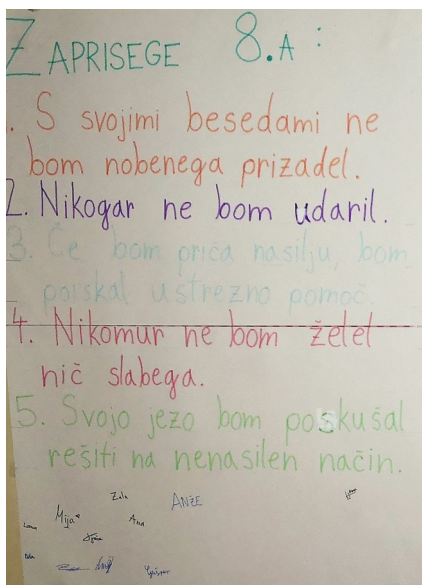 ZAPRISEGE 8.A:
1. S svojimi besedami ne
bom nobenega prizadel.
2. Nikogar ne bom udaril.
3. Če bom priča nasilju, bom
poiskal ustrezno pomoč.
4. Nikomur ne bom želel
nič slabega.
5. Svojo jezo bom poskušal
rešiti na nenasilen način.
Zala
ANŽE
Mija
Ana